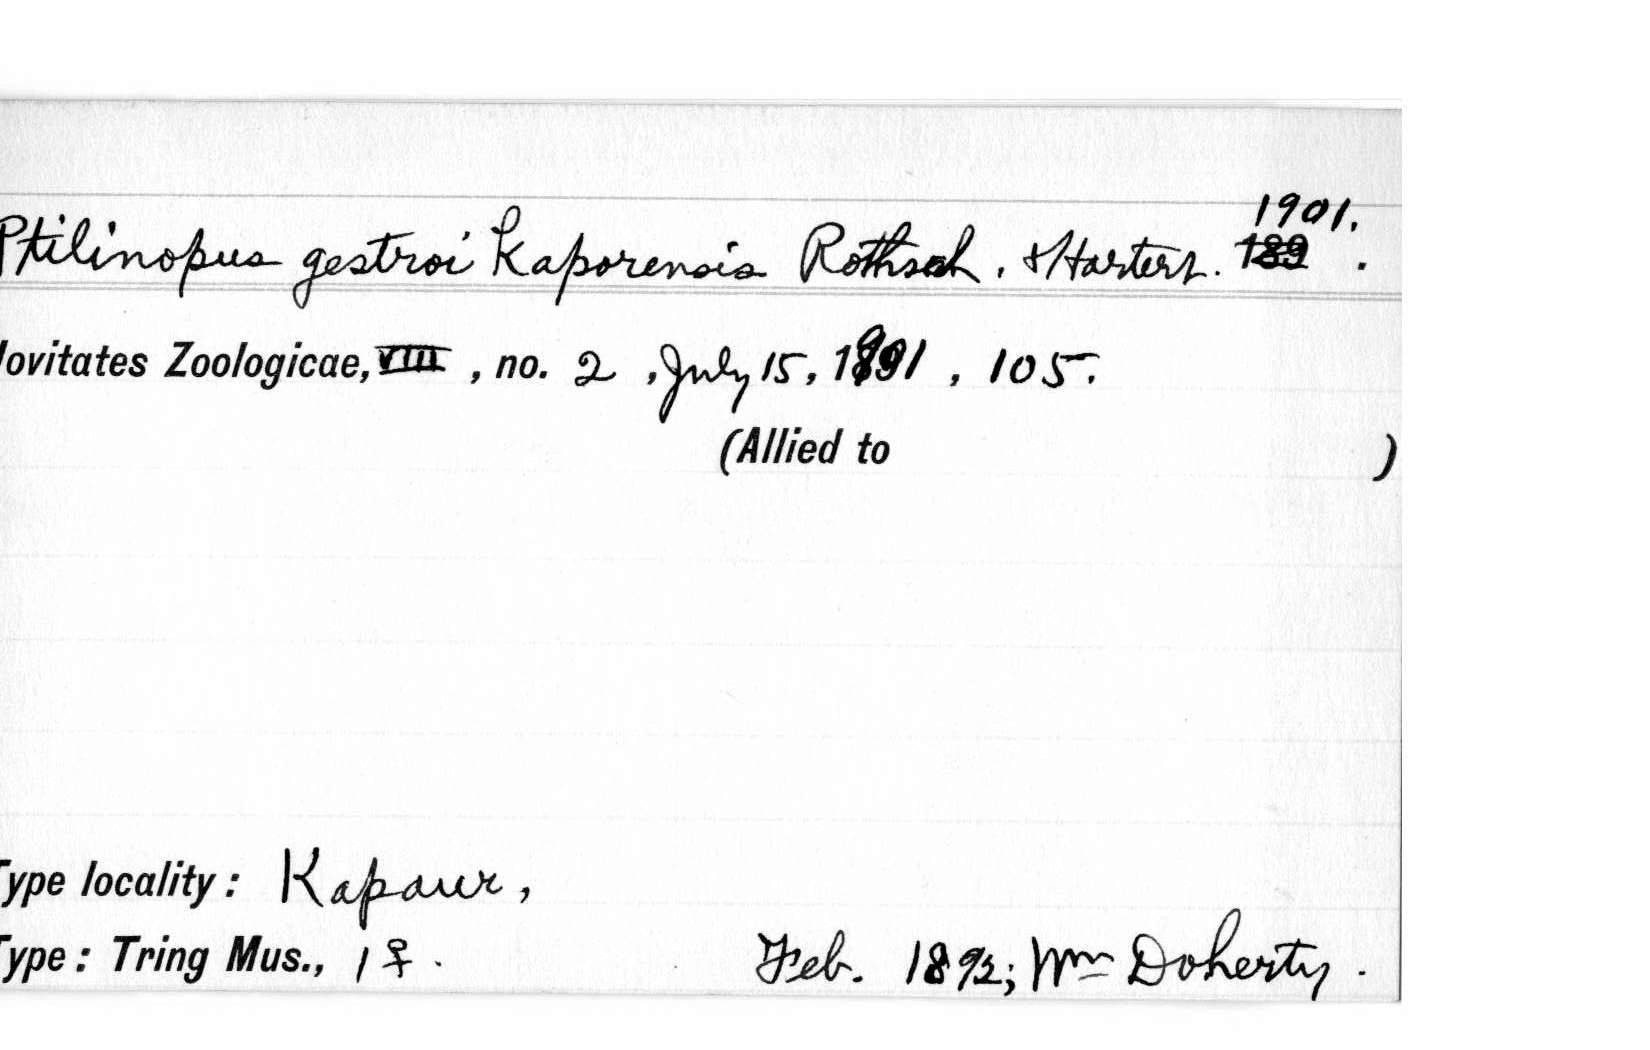 1901.
Ptilinopus gestroi kaporensis Rothsch. & Hartert. 189 .
ovitates Zoologicae, VIII , no. 2 , July 15, 1901 , 105.
(Allied to )
Type locality : Kapaur,
Type : Tring Mus., 1 ♀ . Feb. 1892; Wm Doherty .